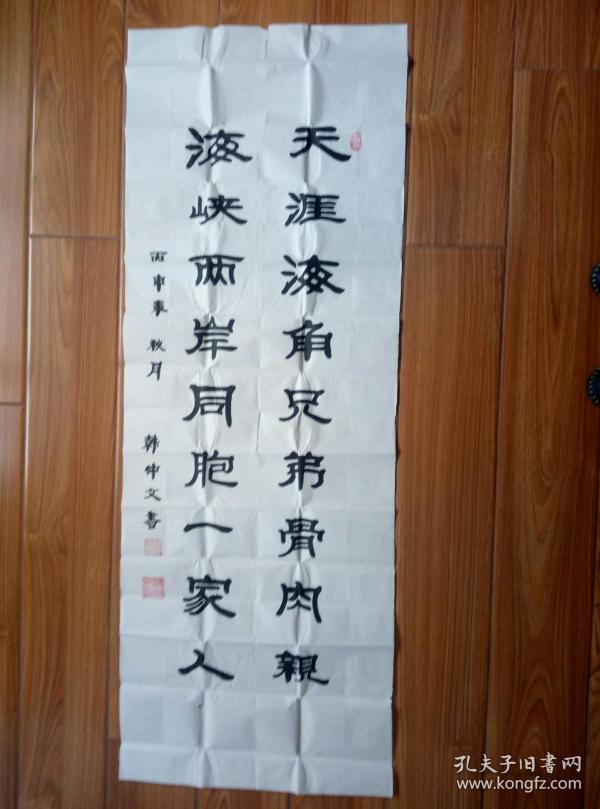 天涯海角兄弟骨肉親
海峡两岸同胞一家人
丙申年 秋月 韩仲文書
孔夫子旧書网
www.kongfz.com